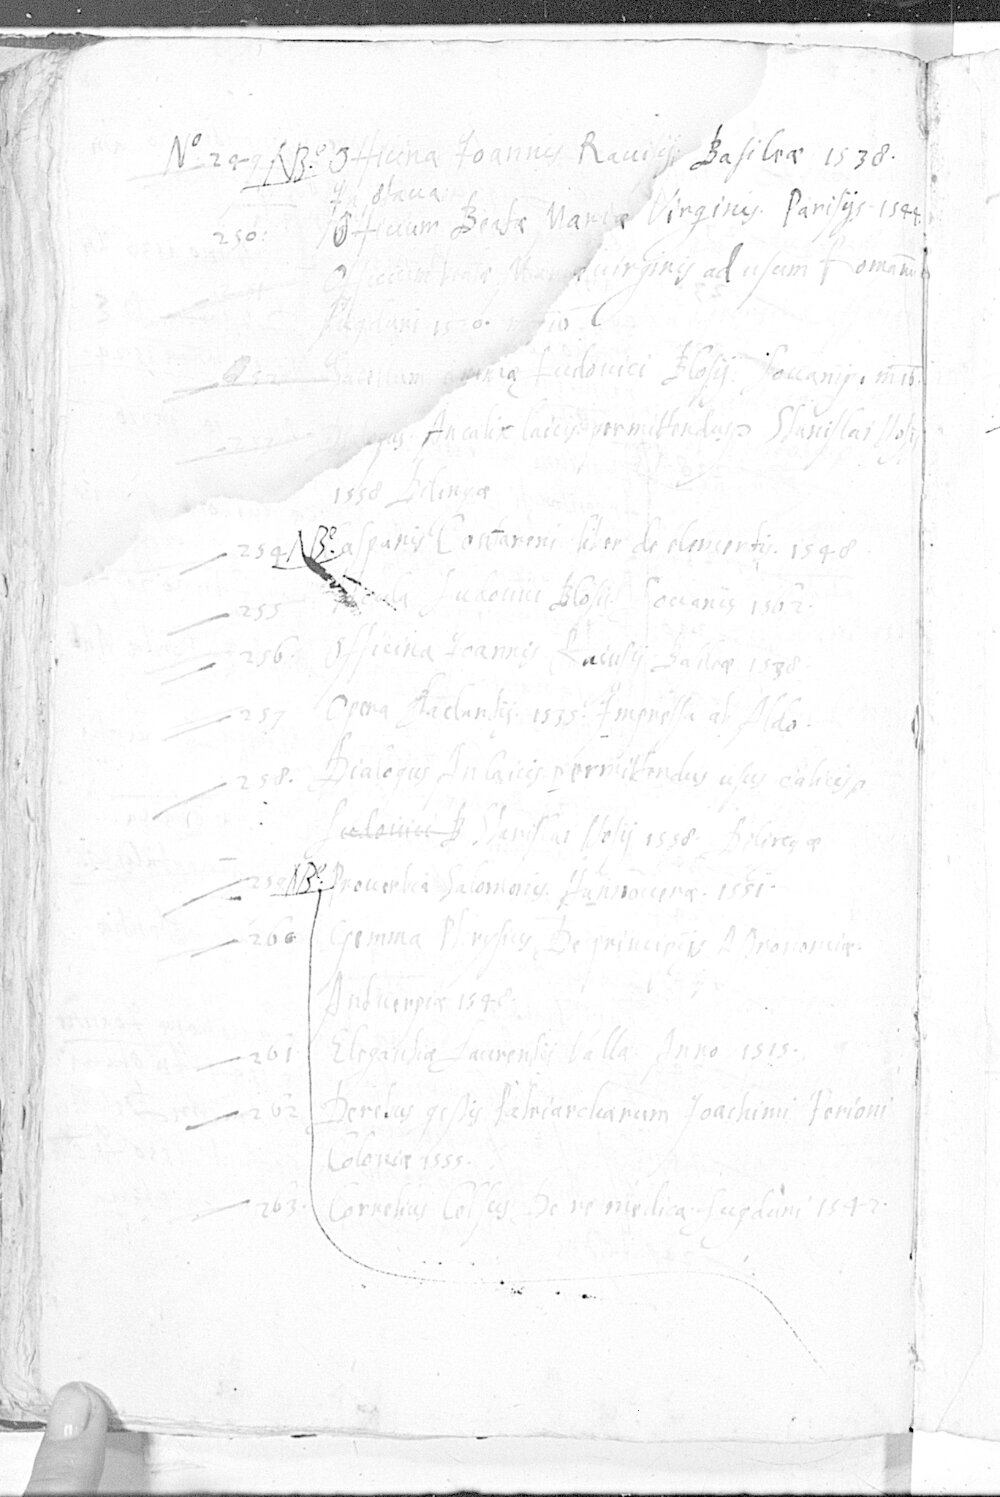 No 249 NB.o Officina Joannis Ravisij Basileæ 1538.
In octava
250. Officium Beatæ Mariæ Virginis. Parisijs 1544
Officium beatæ Mariæ virginis ad usum Romanū
Lugduni 1570.
252 Sacellum animæ Ludovici Blosij. Lovanij.
An calix laicis permittendus Stanislai Hosij
1558 Dilingæ
254 NB.o Casparis Contareni liber de elementis. 1548
255 Ludovici Blosij Lovanij 1562.
256. Officina Joannis Ravisij Basileæ 1538
257 Opera Lactantij. 1535. Impressa ab Aldo.
258. Dialogus An laicis permittendus usus calicis
Ludovici B Stanislai Hosij 1558. Dilingæ
259 NB.o Proverbia Salomonis. Hannoveræ. 1551.
260 Gemma Phrysius De principijs Astronomiæ.
Andverpiæ 1548.
261 Elegantiæ Laurentij Valla. Anno 1515.
262 De rebus gestis Patriarcharum Joachimi Perioni
Coloniæ 1555.
263. Cornelius Celsus De re medica. Lugduni 1542.